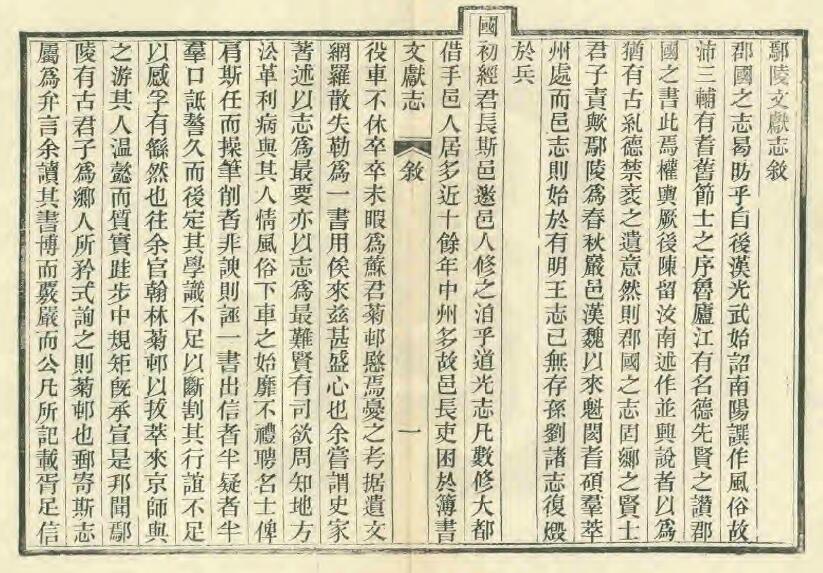 鄢陵文獻志敘
郡國之志曷昉乎自後漢光武始詔南陽譔作風俗故
沛三輔有耆舊節士之序魯廬江有名德先賢之讚郡
國之書此焉權輿厥後陳留汝南述作並興說者以爲
猶有古糺德禁衺之遺意然則郡國之志固鄉之賢士
君子責歟鄢陵爲春秋巖邑漢魏以來魁閎耆碩羣萃
州處而邑志則始於有明王志已無存孫劉諸志復燬
於兵
國初經君長斯邑邀邑人修之洎乎道光志凡數修大都
借手邑人居多近十餘年中州多故邑長吏困於簿書
文獻志 敘 一
役車不休卒卒未暇爲蘇君菊邨慇焉憂之考据遺文
網羅散失勒爲一書用俟來玆甚盛心也余嘗謂史家
著述以志爲最要亦以志爲最難賢有司欲周知地方
㳂革利病與其人情風俗下車之始靡不禮聘名士俾
肩斯任而操筆削者非諛則誣一書出信者半疑者半
羣口詆謷久而後定其學識不足以斷割其行誼不足
以感孚有繇然也往余官翰林菊邨以拔萃來京師與
之游其人溫懿而質實跬步中規矩旣承宣是邦聞鄢
陵有古君子爲鄉人所矜式詢之則菊邨也郵寄斯志
屬爲弁言余讀其書博而覈嚴而公凡所記載胥足信